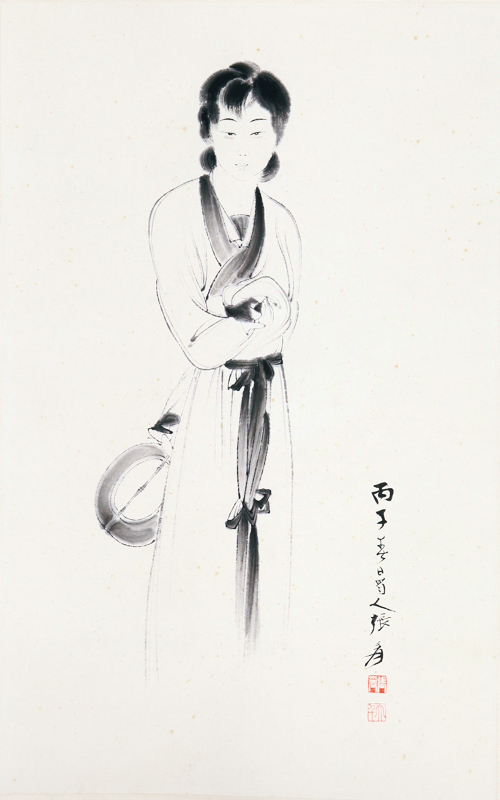 丙子春日蜀人張爰